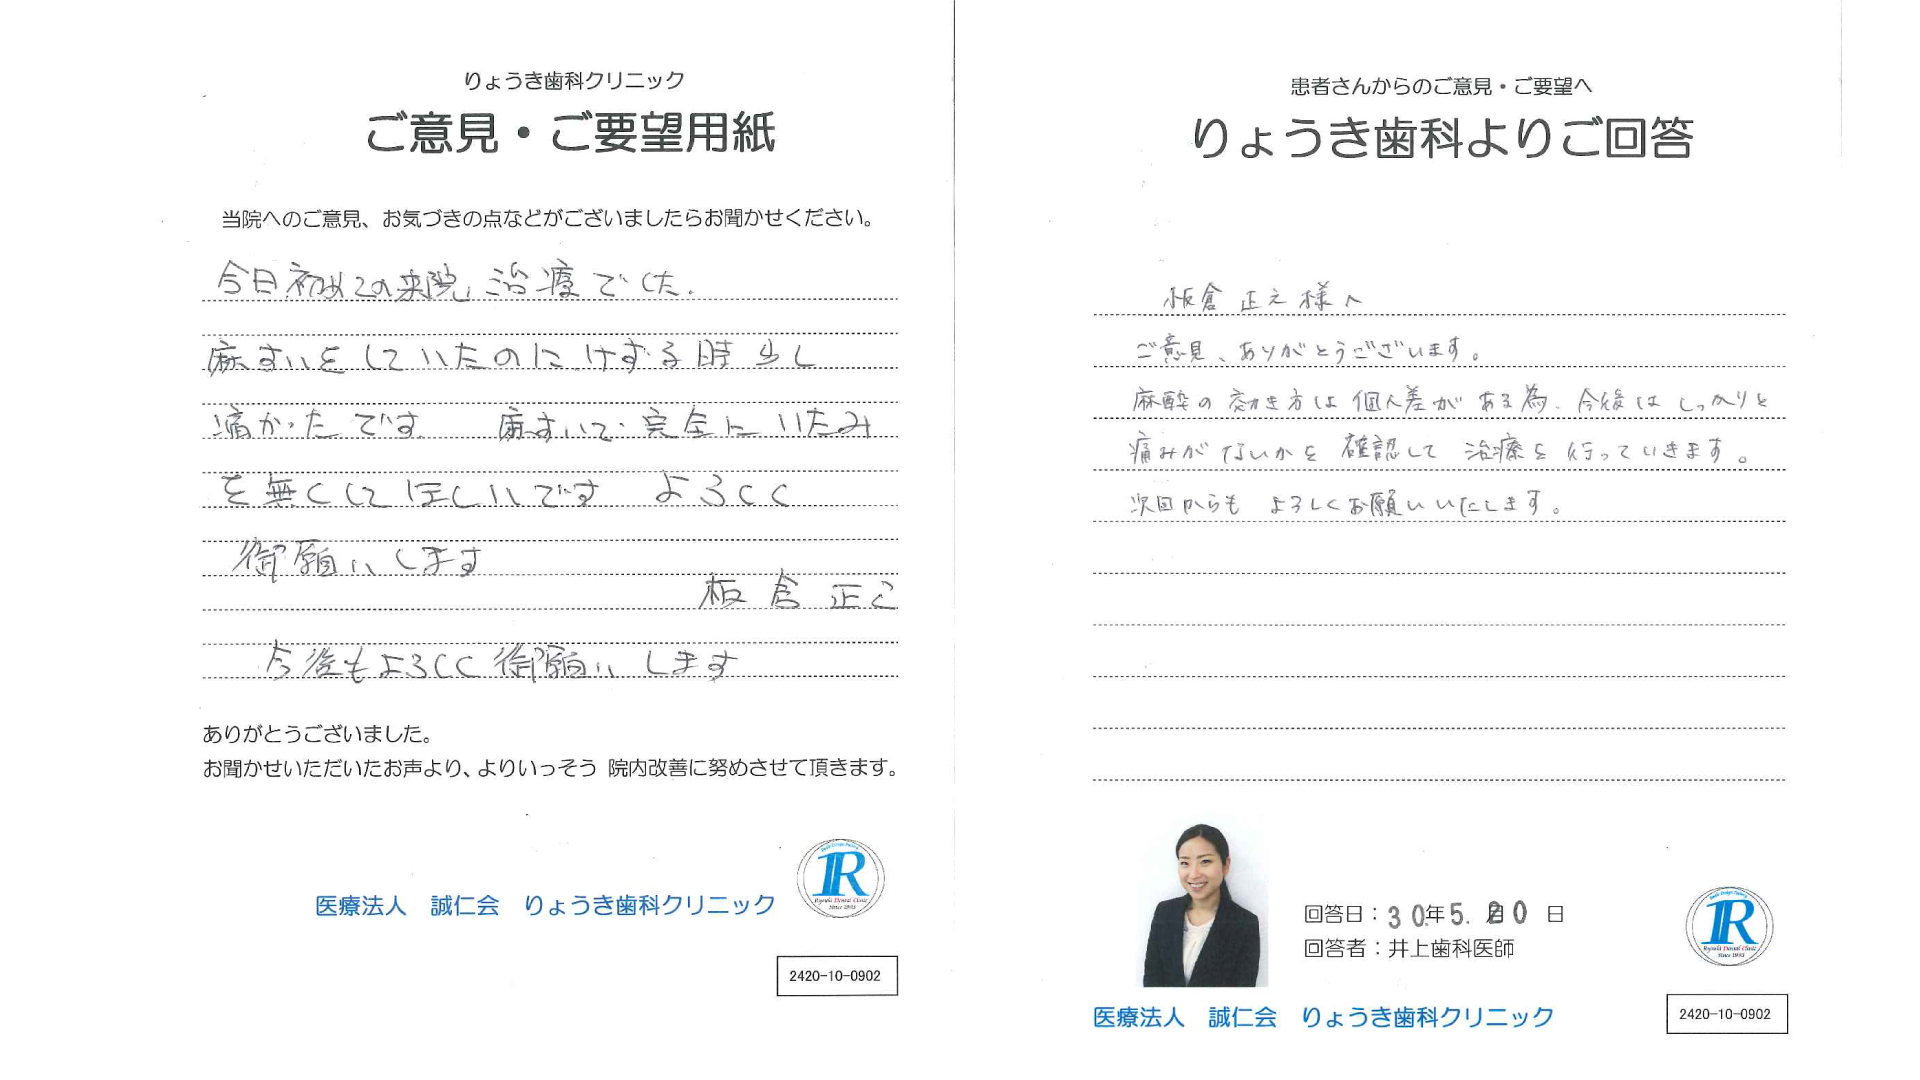 りょうき歯科クリニック
ご意見・ご要望用紙
当院へのご意見、お気づきの点などがございましたらお聞かせください。
今日初めての来院、治療でした.
麻すいをしていたのにけずる時少し
痛かったです 麻すいで完全にいたみ
を無くしてほしいです よろしく
御願いします
板倉正之
今後もよろしく御願いします
ありがとうございました。
お聞かせいただいたお声より、よりいっそう 院内改善に努めさせて頂きます。
医療法人 誠仁会 りょうき歯科クリニック
R
Ryouki Dental Clinic
2420-10-0902
患者さんからのご意見・ご要望へ
りょうき歯科よりご回答
板倉 正之 様へ
ご意見、ありがとうございます。
麻酔の効き方は個人差がある為、今後はしっかりと
痛みがないかを確認して治療を行っていきます。
次回からも よろしくお願いいたします。
回答日：30年5.月20日
回答者：井上歯科医師
医療法人 誠仁会 りょうき歯科クリニック
R
Ryouki Dental Clinic
2420-10-0902